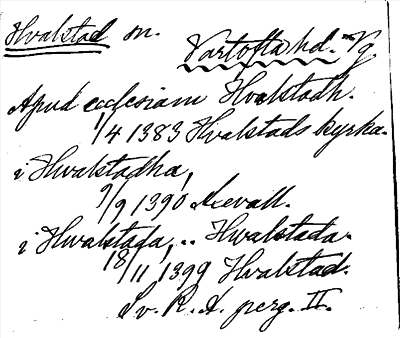 Hvalstad sn. Vartofta hd. Vg.
Apud ecclesiam Hvalstadh.
1/4 1383 Hvalstads kyrka.
i Hwalstadha,
9/9 1390 Axevall.
i Hwalstada, .. Hwalstada.
18/11 1399 Hvalstad.
Sv. R. A. perg. II.